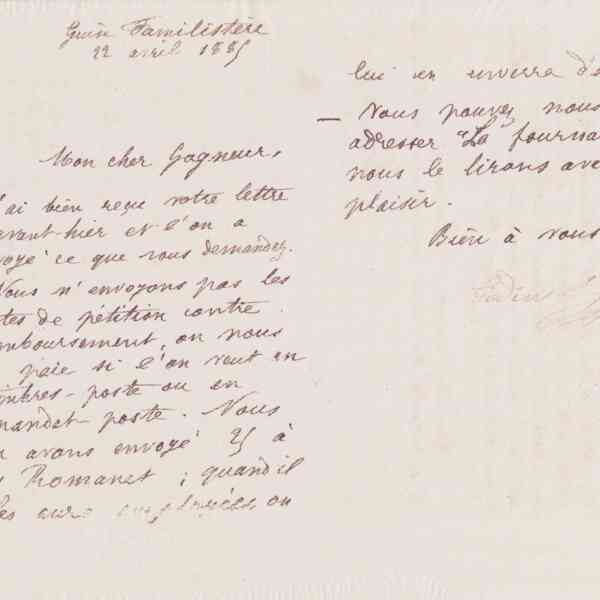 Guise Familistère
22 avril 1885
Mon cher Gagneur,
'ai bien reçu votre lettre
avant-hier et l'on a
voyé ce que vous demandez.
Nous n'envoyons pas les
tes de pétition contre
mboursement, on nous
paie si l'on veut en
mbres-poste ou en
mandat-poste. Nous
avons envoyé 25 à
Romanet ; quand il
les aura employées on
lui en enverra d'a
— Vous pouvez nous
adresser "La fourna
nous le lirons ave
plaisir.
Bien à vous
Godin